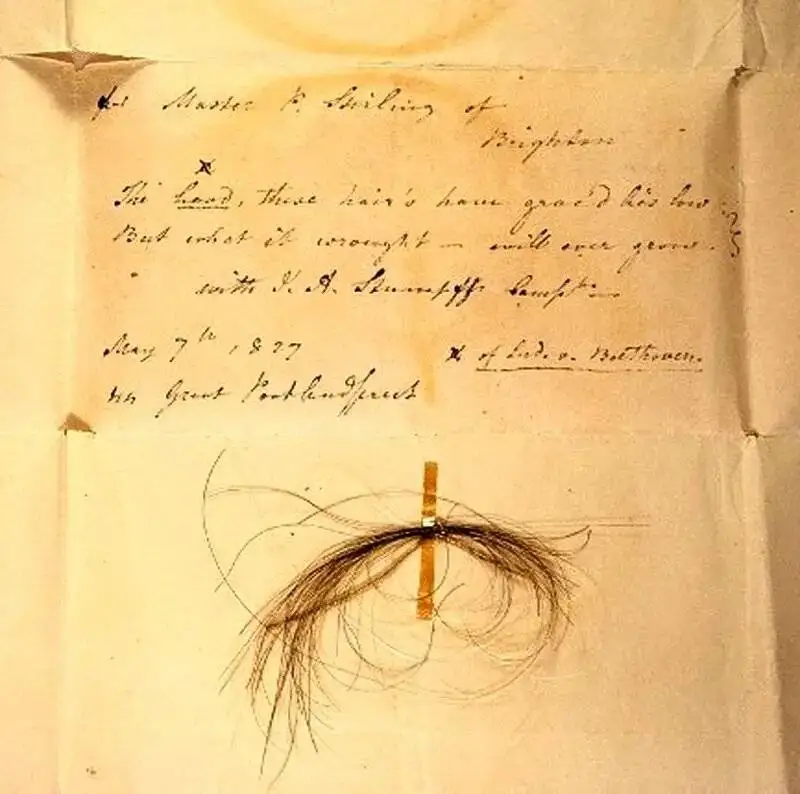 for Master P. Stirling of
Brighton
x
The head, these hair's have grac'd lies low
But what it wrought – will ever grow.
with J. A. Stumpff's Compts
May 7th, 1827
44 Great Portlandstreet
x of Lud. v. Beethoven.